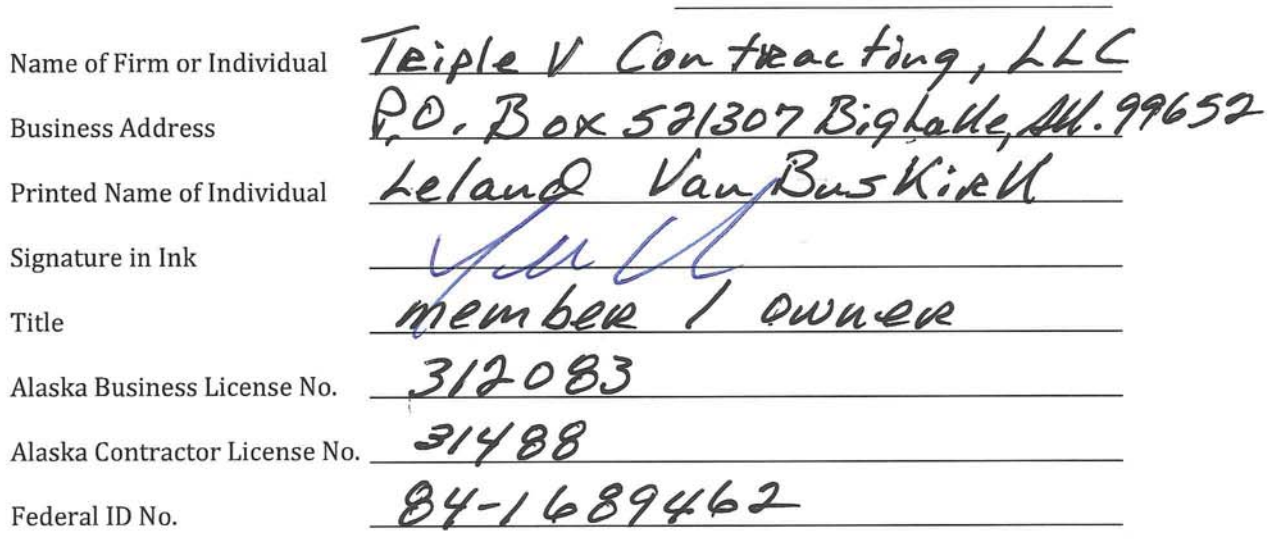 Name of Firm or Individual Triple V Contracting, LLC
Business Address P.O. Box 521307 Big Lake, AK. 99652
Printed Name of Individual Leland Van Buskirk
Signature in Ink
Title member / owner
Alaska Business License No. 312083
Alaska Contractor License No. 31488
Federal ID No. 84-1689462